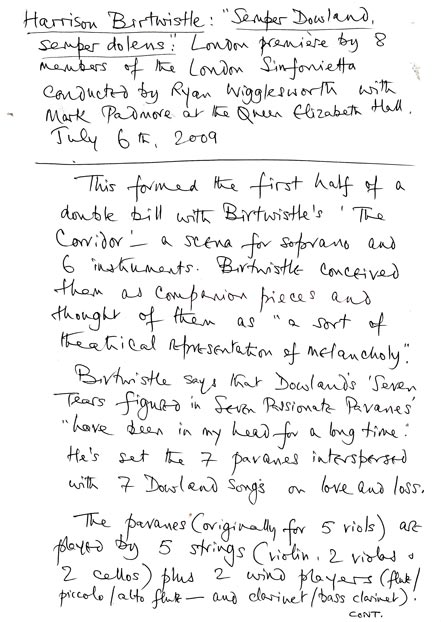 Harrison Birtwistle: "Semper Dowland,
semper dolens": London première by 8
members of the London Sinfonietta
conducted by Ryan Wigglesworth with
Mark Padmore at the Queen Elizabeth Hall.
July 6th, 2009
This formed the first half of a
double bill with Birtwistle's 'The
Corridor' – a scena for soprano and
6 instruments. Birtwistle conceived
them as companion pieces and
thought of them as "a sort of
theatrical representation of melancholy".
Birtwistle says that Dowland's 'Seven
Tears figured in Seven Passionate Pavanes'
"have been in my head for a long time".
He's set the 7 pavanes interspersed
with 7 Dowland songs on love and loss.
The pavanes (originally for 5 viols) are
played by 5 strings (violin, 2 violas &
2 cellos) plus 2 wind players (flute/
piccolo/alto flute – and clarinet/bass clarinet).
CONT.